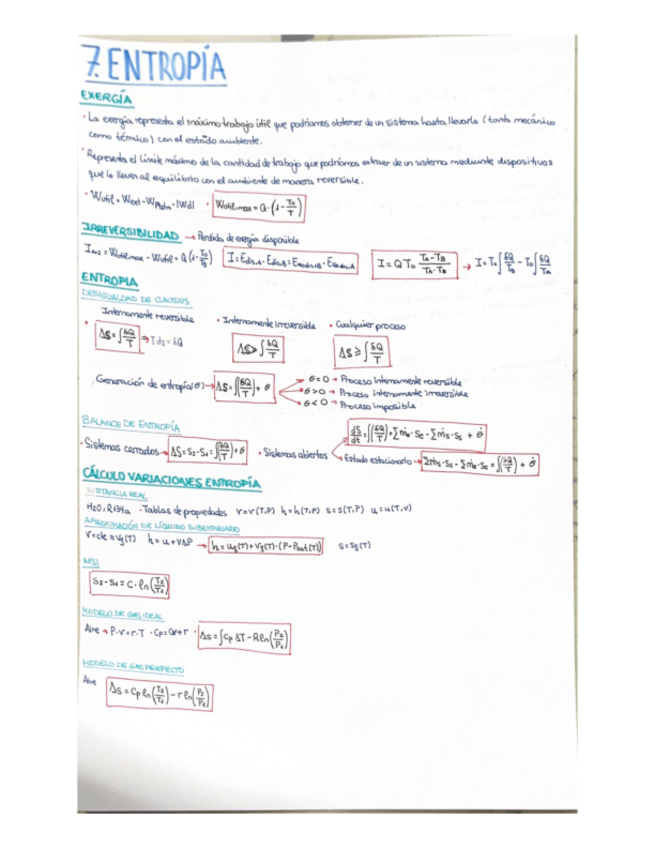 7. ENTROPÍA
EXERGÍA
· La exergía representa el máximo trabajo útil que podríamos obtener de un sistema hasta llevarlo (tanto mecánico
como térmico) con el estado ambiente.
· Representa el límite máximo de la cantidad de trabajo que podríamos extraer de un sistema mediante dispositivos
que lo lleven al equilibrio con el ambiente de manera reversible.
· Wútil = Wext - WPatm - |Wd| · Wútil,max = Q·(1 - To/T)
IRREVERSIBILIDAD → Pérdida de exergía disponible
I = Q To (TA - TB)/(TA·TB) → I = To∫δQ/TB - To∫δQ/TA
ENTROPIA
DESIGUALDAD DE CLAUSIUS
Internamente reversible · Internamente irreversible · Cualquier proceso
· ΔS = ∫δQ/T ⇒ Tds = δQ ΔS > ∫δQ/T ΔS ≥ ∫δQ/T
Generación de entropía(θ) → ΔS = ∫(δQ/T) + θ
θ = 0 → Proceso internamente reversible
θ > 0 → Proceso internamente irreversible
θ < 0 → Proceso imposible
BALANCE DE ENTROPÍA
dS/dt = ∫(δQ/T) + Σṁe·Se - Σṁs·Ss + θ̇
· Sistemas cerrados → ΔS = S2 - S1 = ∫(δQ/T) + θ · Sistemas abiertos
Estado estacionario → Σṁs·Ss - Σṁe·Se = ∫(δQ/T) + θ̇
CÁLCULO VARIACIONES ENTROPÍA
SUSTANCIA REAL
H2O, R134a · Tablas de propiedades v=v(T,P) h=h(T,P) s=s(T,P) u=u(T,v)
APROXIMACIÓN DE LÍQUIDO SUBENFRIADO
h = u + vΔP s = sg(T)
MSI
S2 - S1 = C · ln(T2/T1)
MODELO DE GAS IDEAL
Aire → P·v = r·T · Cp = Cv + r · Δs = ∫Cp ΔT - R ln(P2/P1)
MODELO DE GAS PERFECTO
Aire Δs = Cp ln(T2/T1) - r ln(P2/P1)